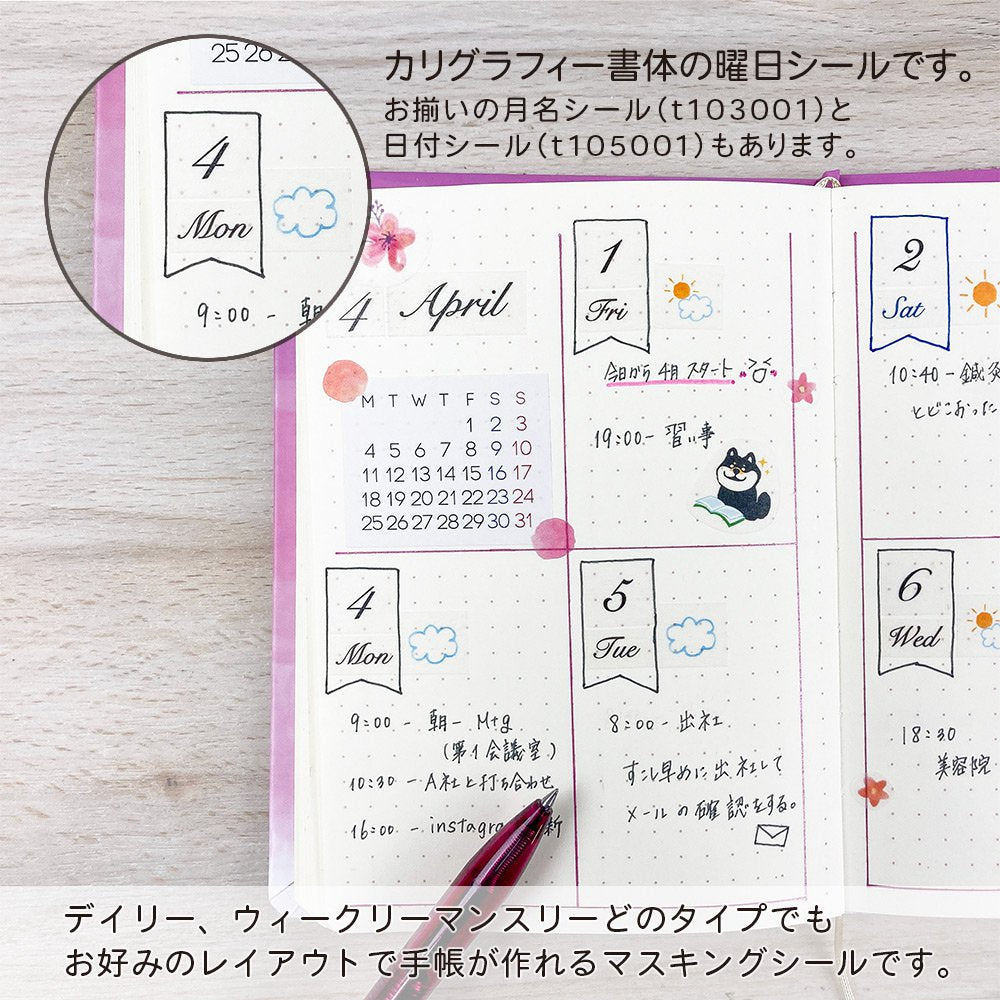 カリグラフィー書体の曜日シールです。
お揃いの月名シール（t103001）と
日付シール（t105001）もあります。
25 26
4
Mon
9:00 - 朝
4 April
M T W T F S S
1 2 3
4 5 6 7 8 9 10
11 12 13 14 15 16 17
18 19 20 21 22 23 24
25 26 27 28 29 30 31
1
Fri
今日から 4月 スタート
19:00- 習い事
2
Sat
10:40 - 鍼灸
とどこおった
4
Mon
9:00 - 朝一 Mtg
(第1会議室)
10:30 - A社と打ち合わせ
16:00 - instagra 新
5
Tue
8:00 - 出社
すこし早めに出社して
メールの確認をする。
6
Wed
18:30
美容院
デイリー、ウィークリーマンスリーどのタイプでも
お好みのレイアウトで手帳が作れるマスキングシールです。